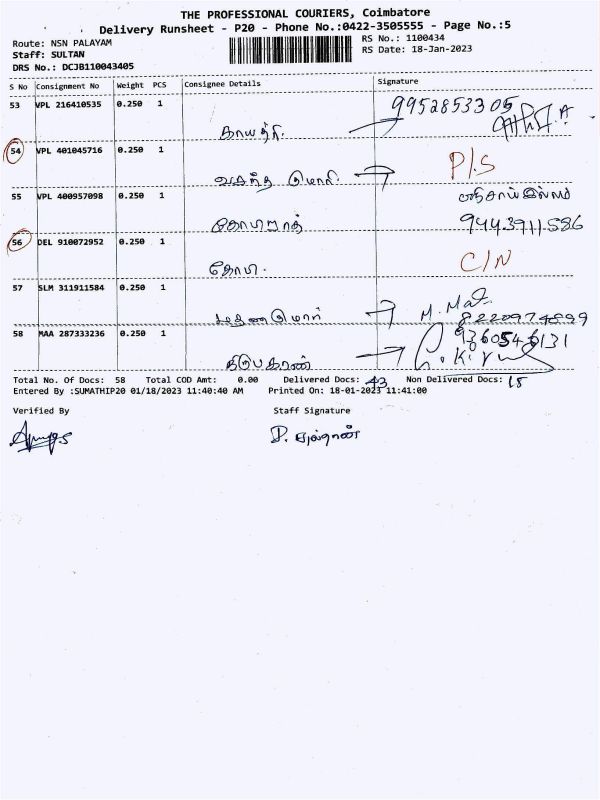 THE PROFESSIONAL COURIERS, Coimbatore
Delivery Runsheet - P20 - Phone No.:0422-3505555 - Page No.:5
Route: NSN PALAYAM
RS No.: 1100434
Staff: SULTAN
RS Date: 18-Jan-2023
DRS No.: DCJB110043405
S No Consignment No Weight PCS Consignee Details Signature
53 VPL 216410535 0.250 1 9952853305
காயத்ரி
54 VPL 401045716 0.250 1 P/S
வசந்த
55 VPL 400957098 0.250 1
9443911586
56 DEL 910072952 0.250 1 C/N
கோபி.
57 SLM 311911584 0.250 1
8220974899
58 MAA 287333236 0.250 1
Total No. Of Docs: 58 Total COD Amt: 0.00 Delivered Docs: 43 Non Delivered Docs: 15
Entered By :SUMATHIP20 01/18/2023 11:40:40 AM Printed On: 18-01-2023 11:41:00
Verified By Staff Signature